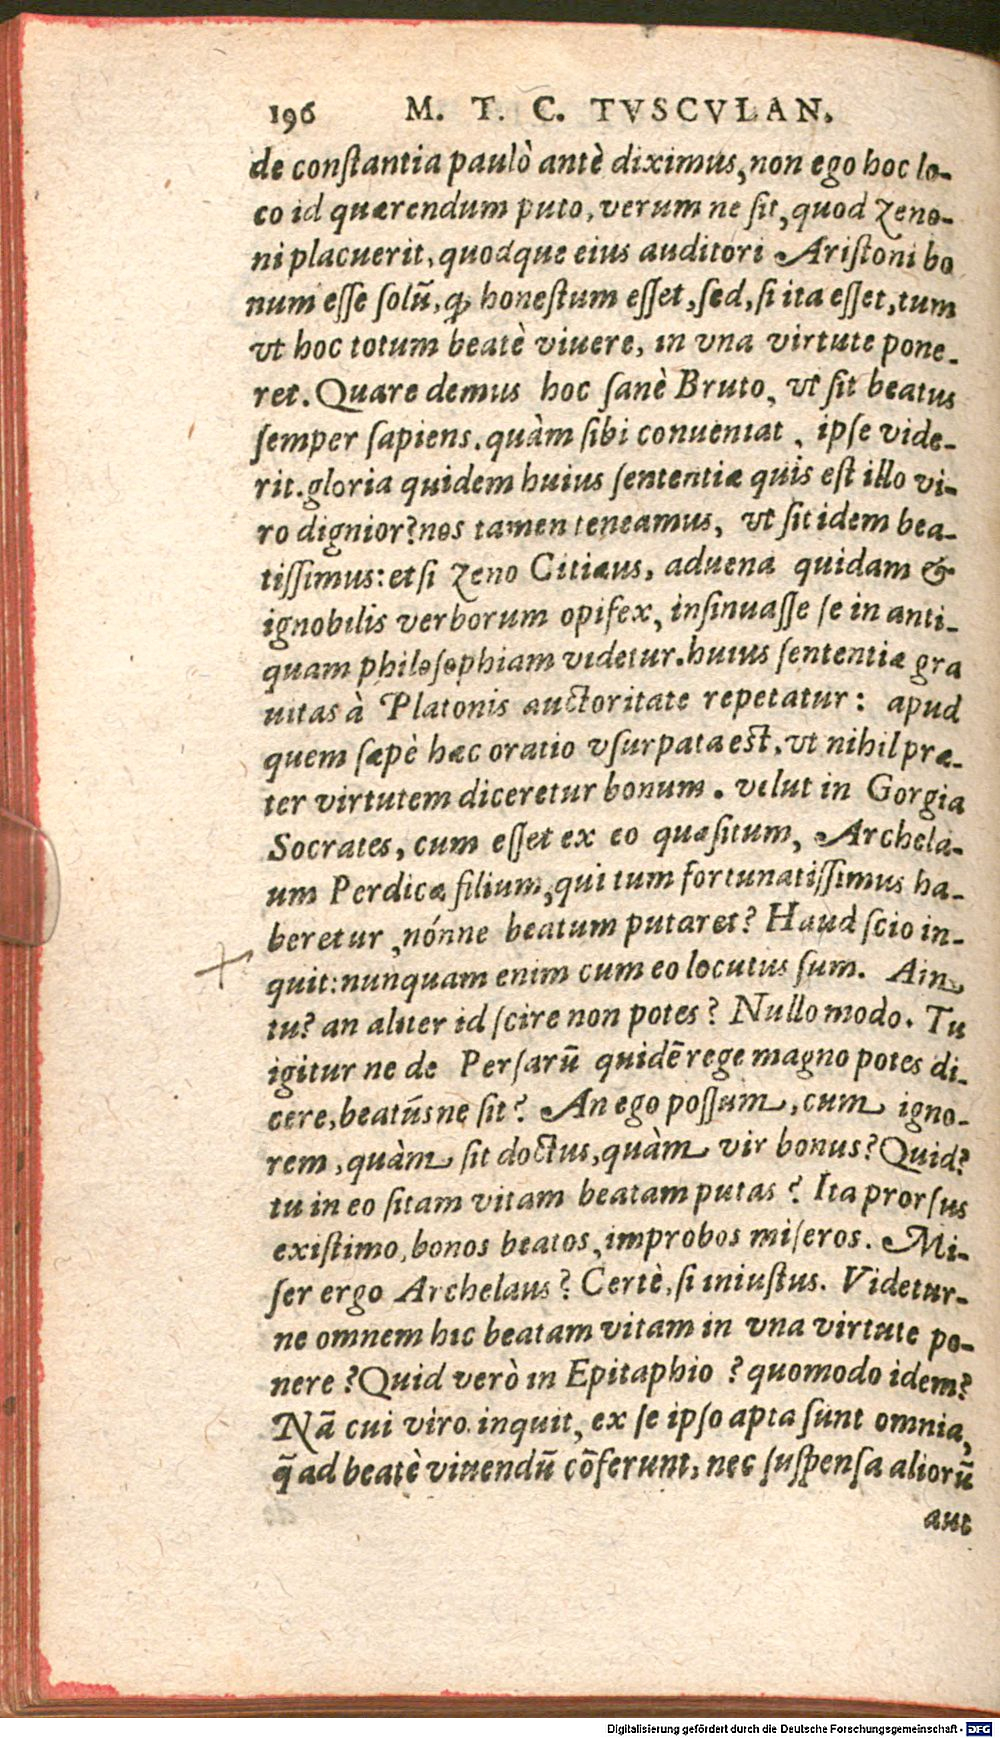 196 M. T. C. TVSCVLAN.
de conſtantia paulò antè diximus, non ego hoc lo-
co id quærendum puto, verum ne ſit, quod Zeno-
ni placuerit, quodque eius auditori Ariſtoni bo
num eſſe ſolū, ꝙ honeſtum eſſet, ſed, ſi ita eſſet, tum
vt hoc totum beatè viuere, in vna virtute pone-
ret. Quare demus hoc ſanè Bruto, vt ſit beatus
ſemper ſapiens. quàm ſibi conueniat, ipſe vide-
rit. gloria quidem huius ſententiæ quis eſt illo vi-
ro dignior? nos tamen teneamus, vt ſit idem bea-
tiſſimus: etſi Zeno Citiæus, aduena quidam &
ignobilis verborum opifex, inſinuaſſe ſe in anti-
quam philoſophiam videtur. huius ſententiæ gra
uitas à Platonis auctoritate repetatur: apud
quem ſæpè hæc oratio vſurpata eſt, vt nihil præ-
ter virtutem diceretur bonum. velut in Gorgia
Socrates, cum eſſet ex eo quæſitum, Archela-
um Perdicæ filium, qui tum fortunatiſſimus ha-
beretur, nónne beatum putaret? Haud ſcio in-
quit: nunquam enim cum eo locutus ſum. Ain
tu? an aliter id ſcire non potes? Nullo modo. Tu
igitur ne de Perſarū quidē rege magno potes di-
cere, beatúsne ſit? An ego poſſum, cum igno-
rem, quàm ſit doctus, quàm vir bonus? Quid?
tu in eo ſitam vitam beatam putas? Ita prorſus
exiſtimo, bonos beatos, improbos miſeros. Mi-
ſer ergo Archelaus? Certè, ſi iniuſtus. Videtur-
ne omnem hic beatam vitam in vna virtute po-
nere? Quid verò in Epitaphio? quomodo idem?
Nā cui viro, inquit, ex ſe ipſo apta ſunt omnia,
q̄ ad beatè viuendū cōferunt, nec ſuſpenſa aliorū
aut
Digitalisierung gefördert durch die Deutsche Forschungsgemeinschaft - DFG